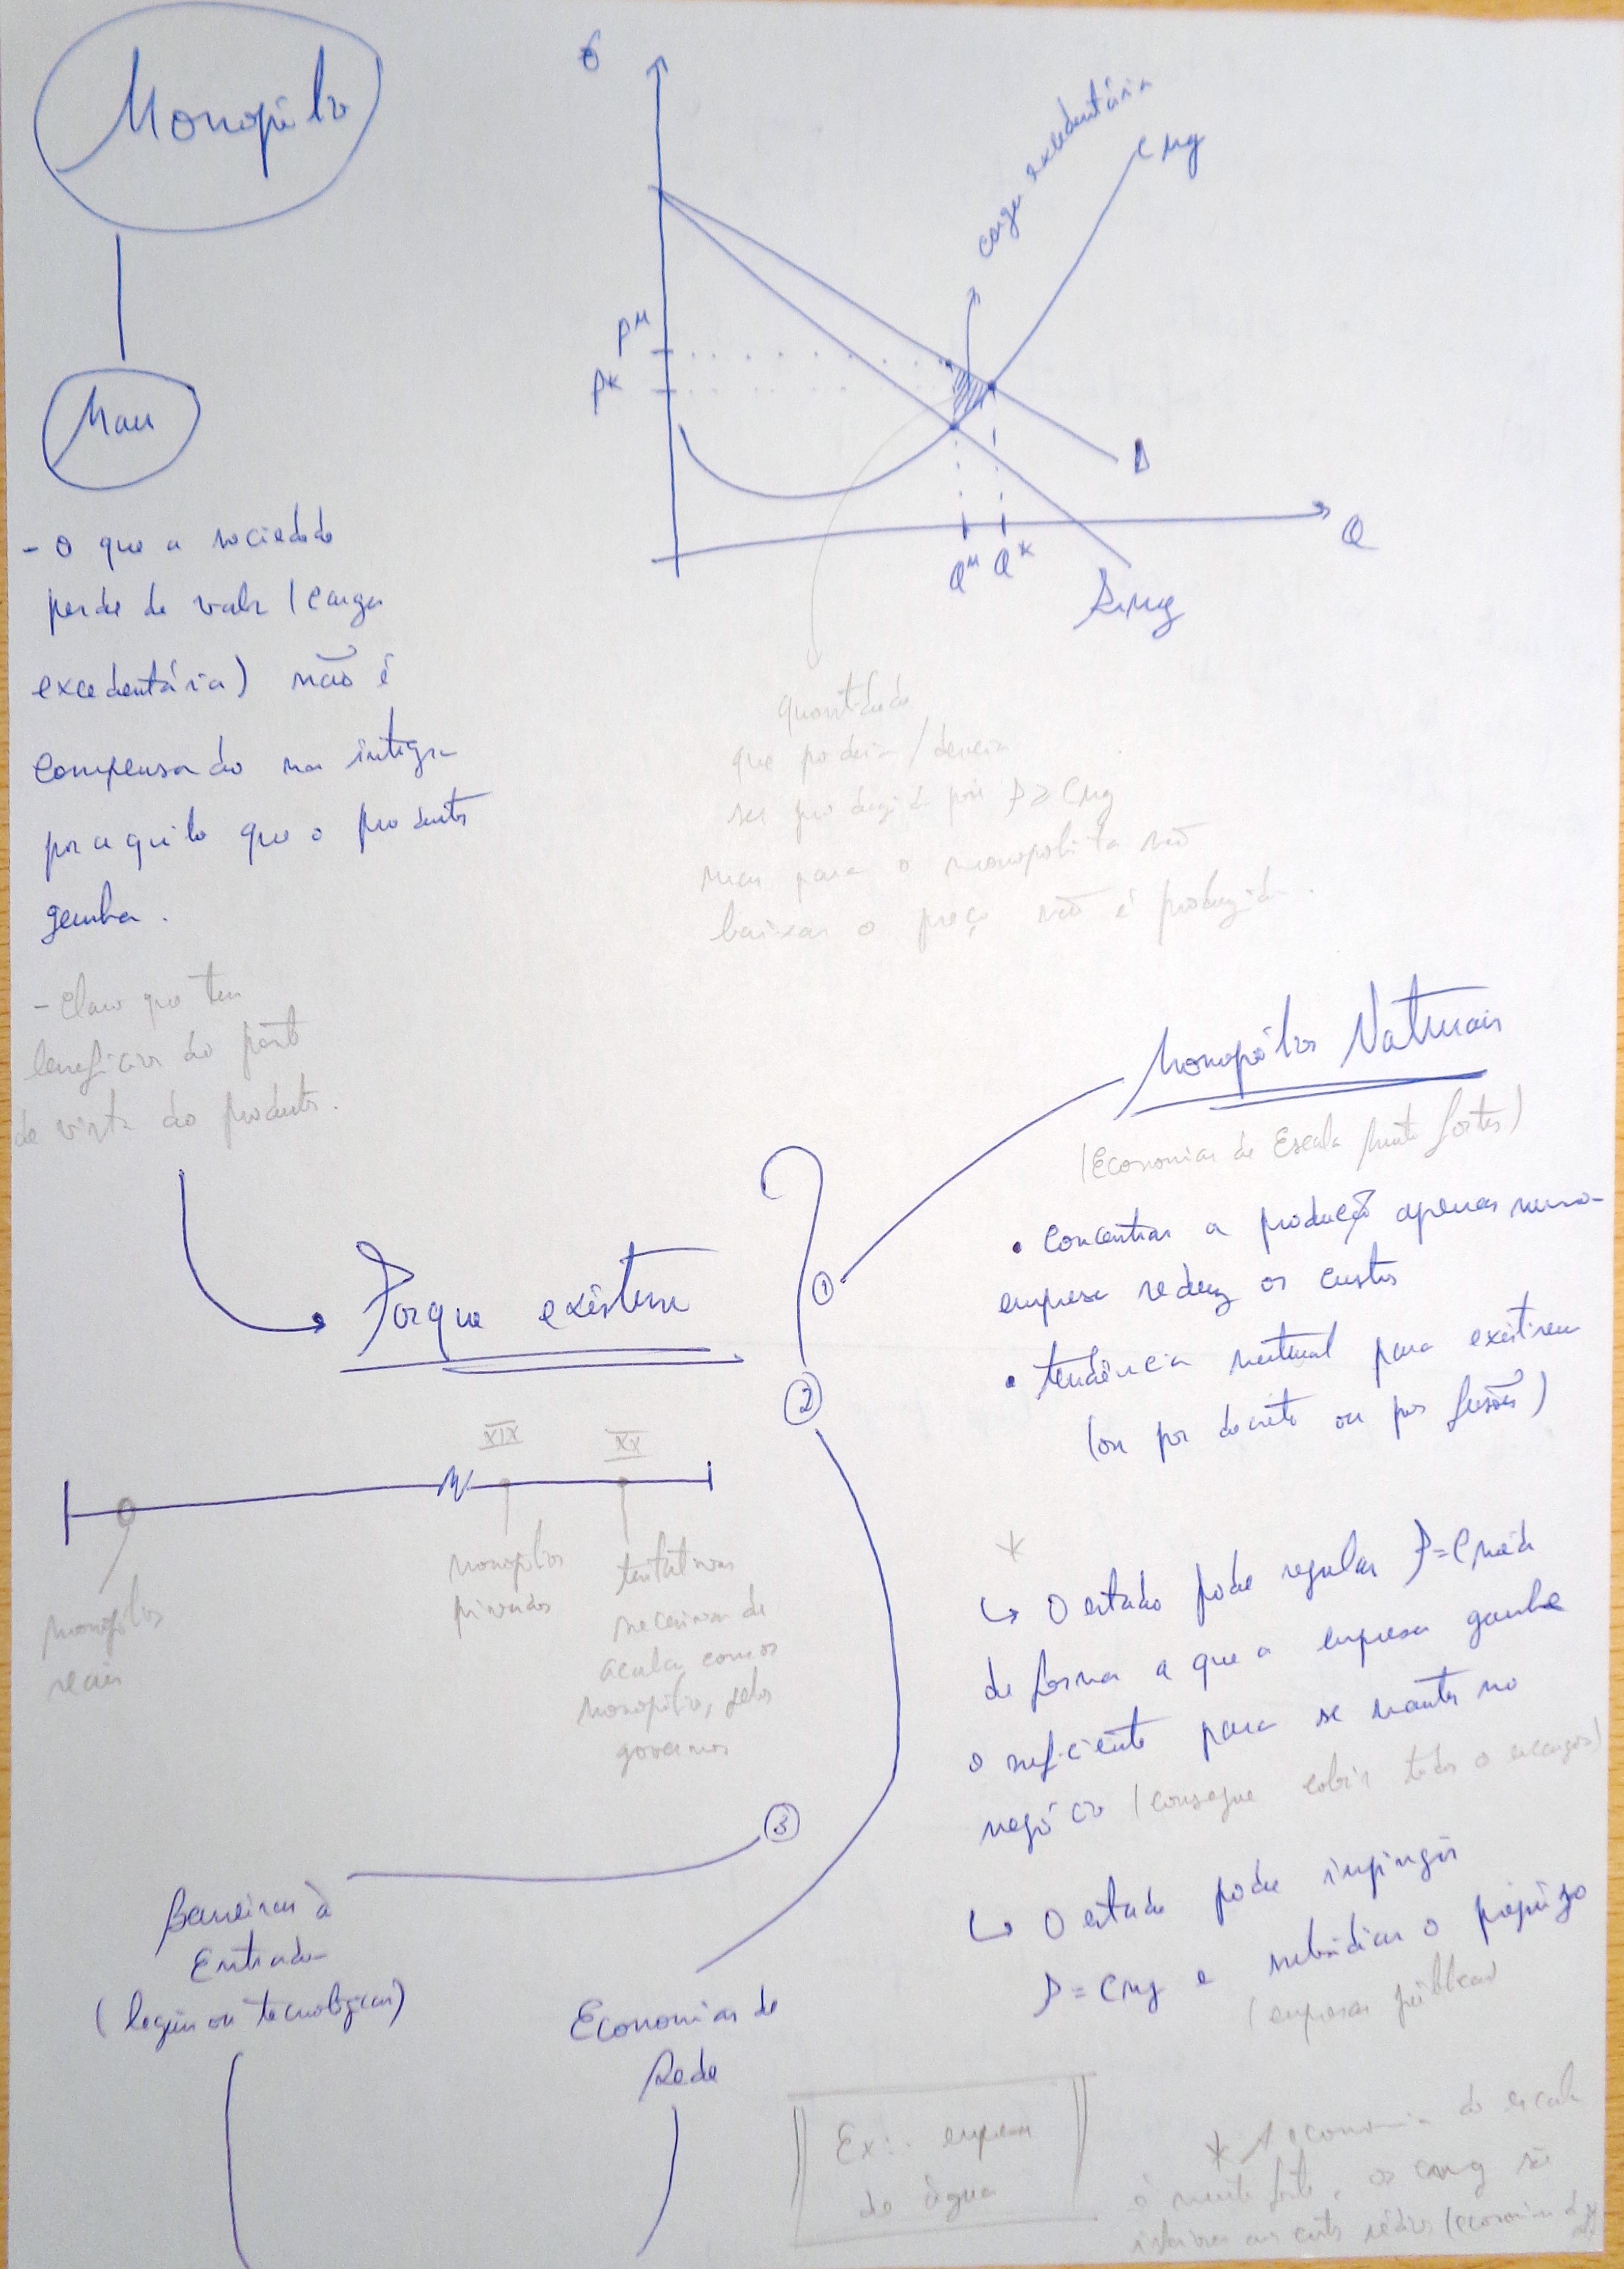 Monopólio
Mau
- O que a sociedade
perde de valor (carga
excedentária) não é
compensado na íntegra
por aquilo que o produtor
ganha.
- Claro que tem
benefícios do ponto
de vista do produtor.
carga excedentária
CMg
P^M
P*
D
Q
Q^M Q*
RMg
quantidade
que poderia/deveria
ser produzida pois P≥CMg
mas para o monopolista não
baixar o preço não é produzida.
Porque existem
①
②
③
Monopólios Naturais
(Economias de Escala muito fortes)
• Concentrar a produção apenas numa
empresa reduz os custos
• tendência natural para existirem
(ou por decreto ou por fusões)
*
↳ O estado pode regular P=CMéd
de forma a que a empresa ganhe
o suficiente para se manter no
negócio (consegue cobrir todos os encargos)
↳ O estado pode impingir
P=CMg e subsidiar o prejuízo
(empresas públicas)
XIX
XX
monopólios
reais
monopólios
privados
tentativas
de
acabar com os
monopólios, pelos
governos
Barreiras à
Entrada
(legais ou tecnológicas)
Economias de
Rede
Ex: empresa
de água
* A economia de escala
é muito forte, os CMg são
inferiores aos custos médios (economia de